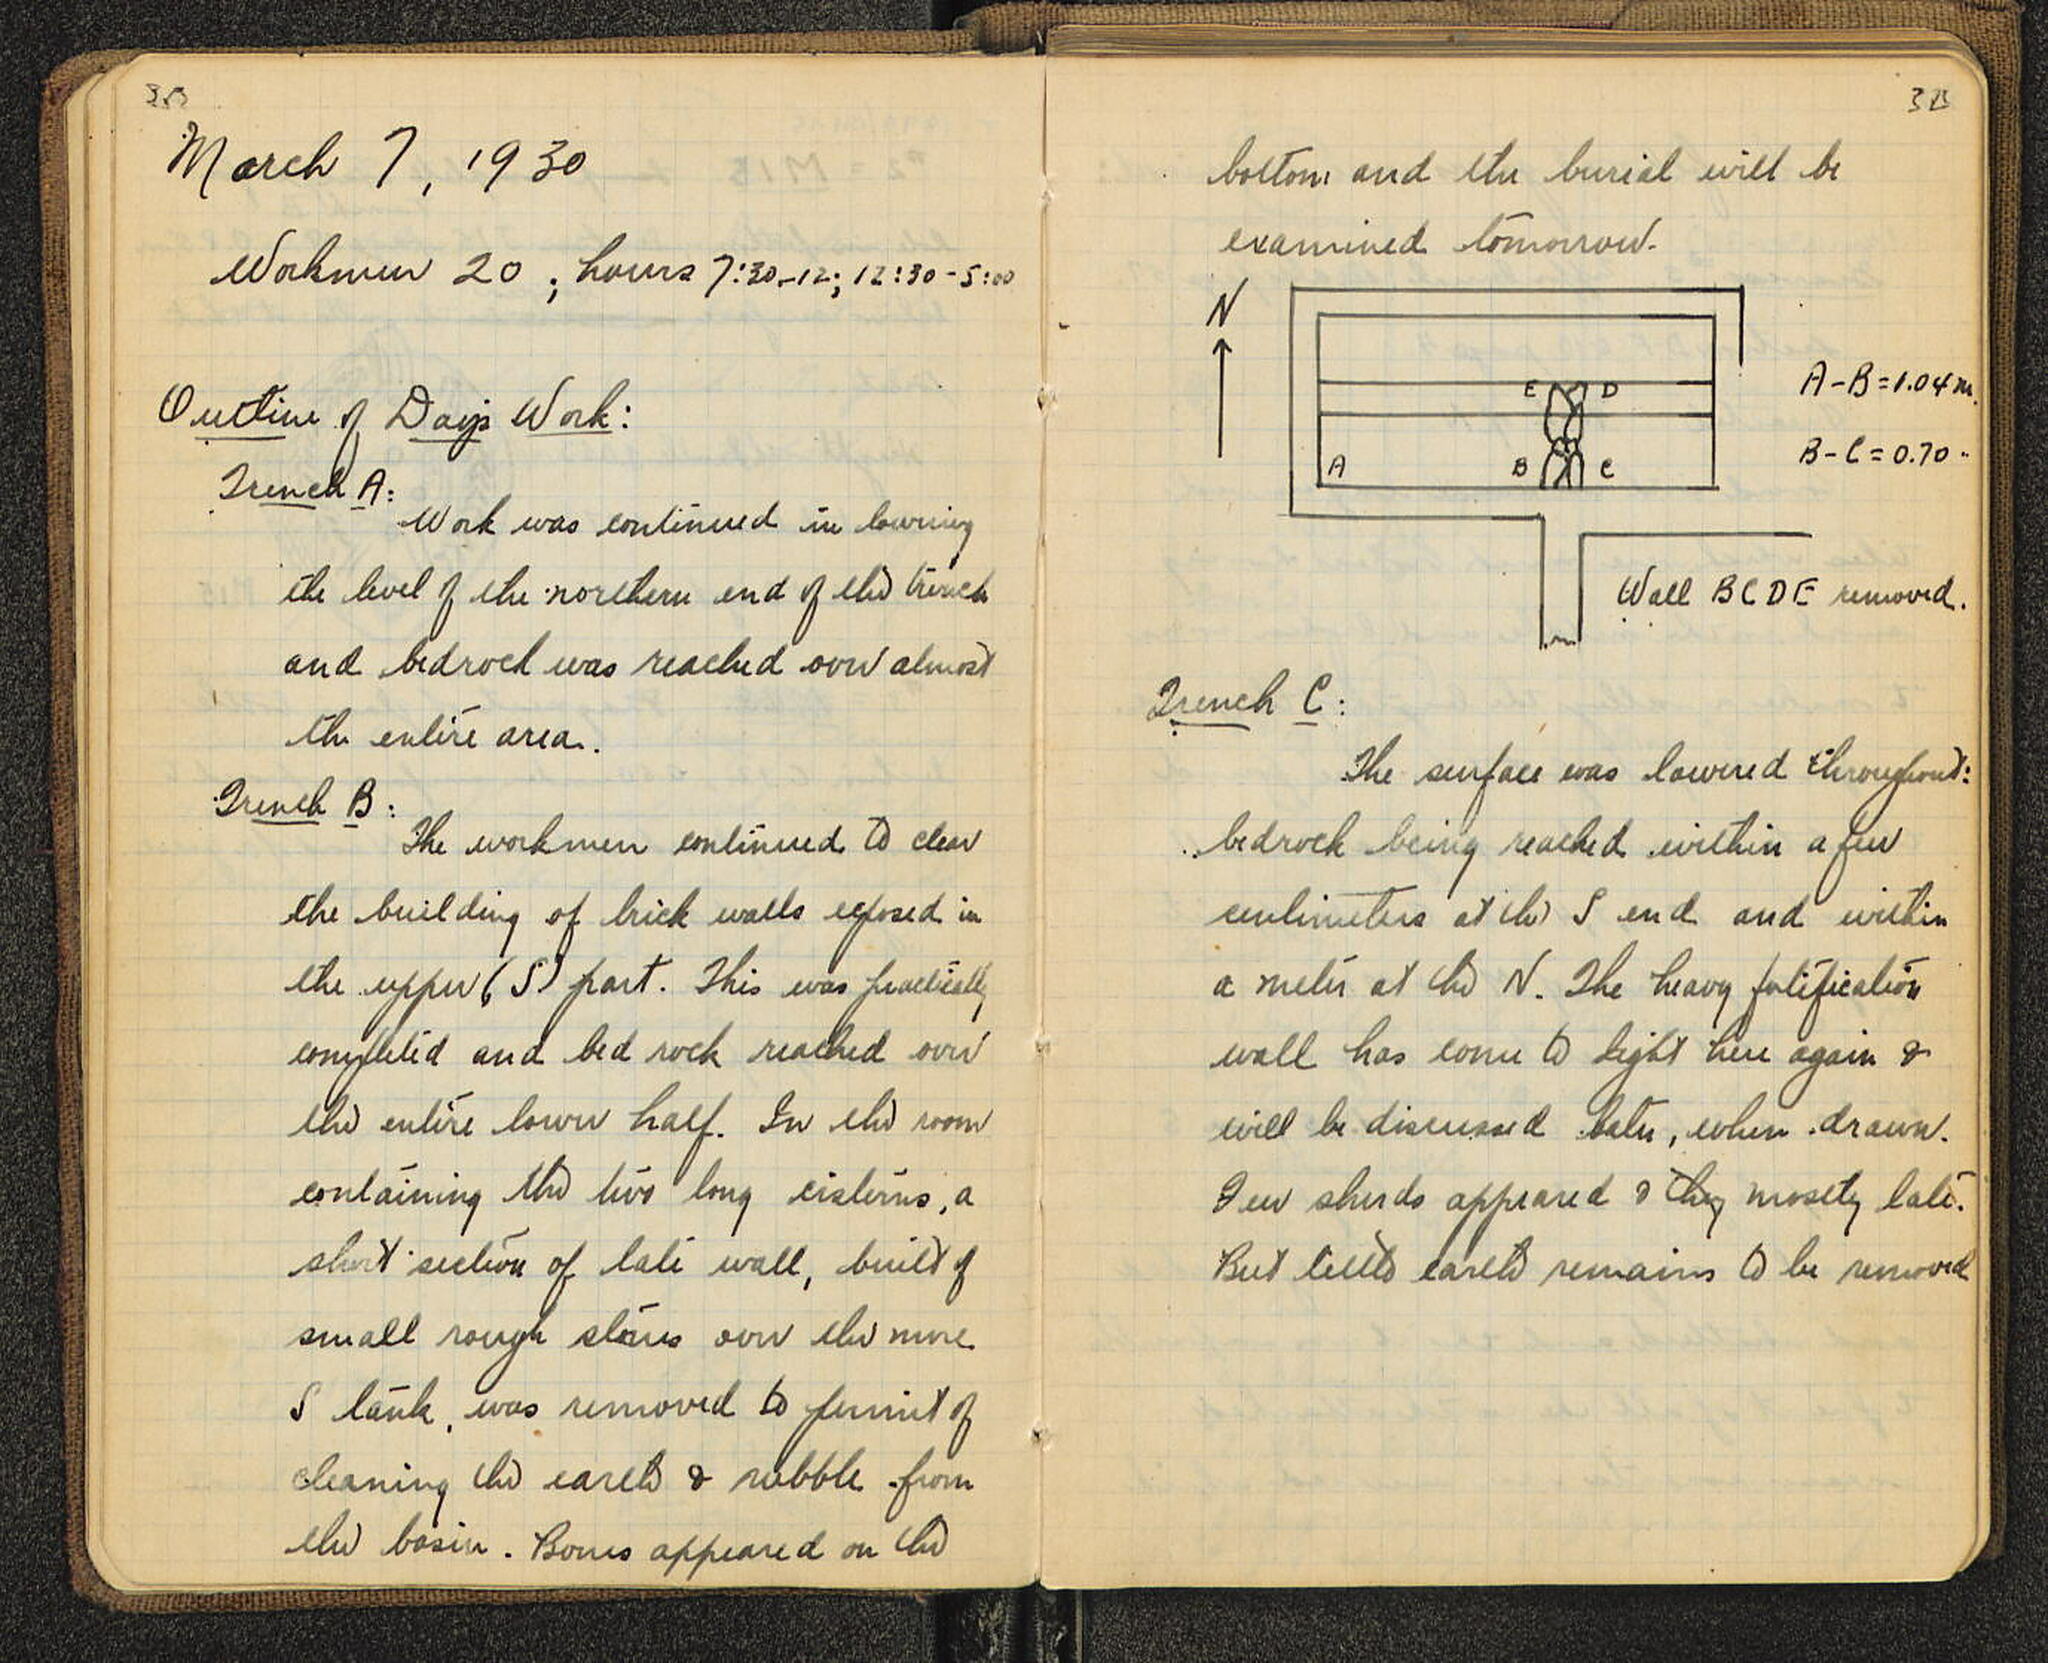 March 7, 1930
Workmen 20; hours 7:30-12; 12:30-5:00
Outline of Day's Work:
Trench A:
Work was continued in lowering
the level of the northern end of the trench
and bedrock was reached over almost
the entire area.
Trench B:
The workmen continued to clear
the building of brick walls exposed in
the upper (S) part. This was practically
completed and bed rock reached over
the entire lower half. In the room
containing the two long cisterns, a
short section of late wall, built of
small rough stones over the more
S tank, was removed to permit of
cleaning the earth & rubble from
the basin. Bones appeared on the
bottom and the burial will be
examined tomorrow.
N
E D
A B C
A-B=1.04 m.
B-C=0.70 "
Wall BCDE removed.
Trench C:
The surface was lowered throughout:
bedrock being reached within a few
centimeters at the S end and within
a meter at the N. The heavy fortification
wall has come to light here again &
will be discussed later, when drawn.
Few sherds appeared & they mostly late.
But little earth remains to be removed